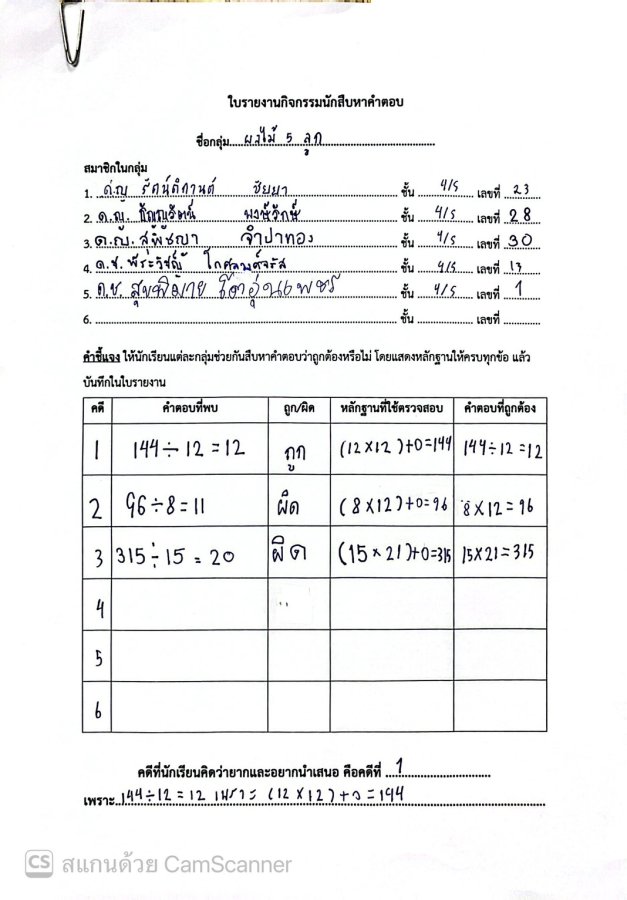 ใบรายงานกิจกรรมนักสืบหาคำตอบ
ชื่อกลุ่ม ผลไม้ 5 ลูก
สมาชิกในกลุ่ม
1. ด.ญ ชัยยา ชั้น 4/5 เลขที่ 23
2. ด.ญ. พงษ์รักษ์ ชั้น 4/5 เลขที่ 28
3. ด.ญ. สุพิชญา จำปาทอง ชั้น 4/5 เลขที่ 30
4. ด.ช. พีระวิชญ์ ชั้น 4/5 เลขที่ 13
5. ด.ช. ชั้น 4/5 เลขที่ 1
6. ชั้น เลขที่
คำชี้แจง ให้นักเรียนแต่ละกลุ่มช่วยกันสืบหาคำตอบว่าถูกต้องหรือไม่ โดยแสดงหลักฐานให้ครบทุกข้อ แล้ว
บันทึกในใบรายงาน
คดี คำตอบที่พบ ถูก/ผิด หลักฐานที่ใช้ตรวจสอบ คำตอบที่ถูกต้อง
1 144÷12=12 ถูก (12×12)+0=144 144÷12=12
2 96÷8=11 ผิด (8×12)+0=96 8×12=96
3 315÷15=20 ผิด (15×21)+0=315 15×21=315
4
5
6
คดีที่นักเรียนคิดว่ายากและอยากนำเสนอ คือคดีที่ 1
เพราะ 144÷12=12 เพราะ (12×12)+0=144
CS สแกนด้วย CamScanner